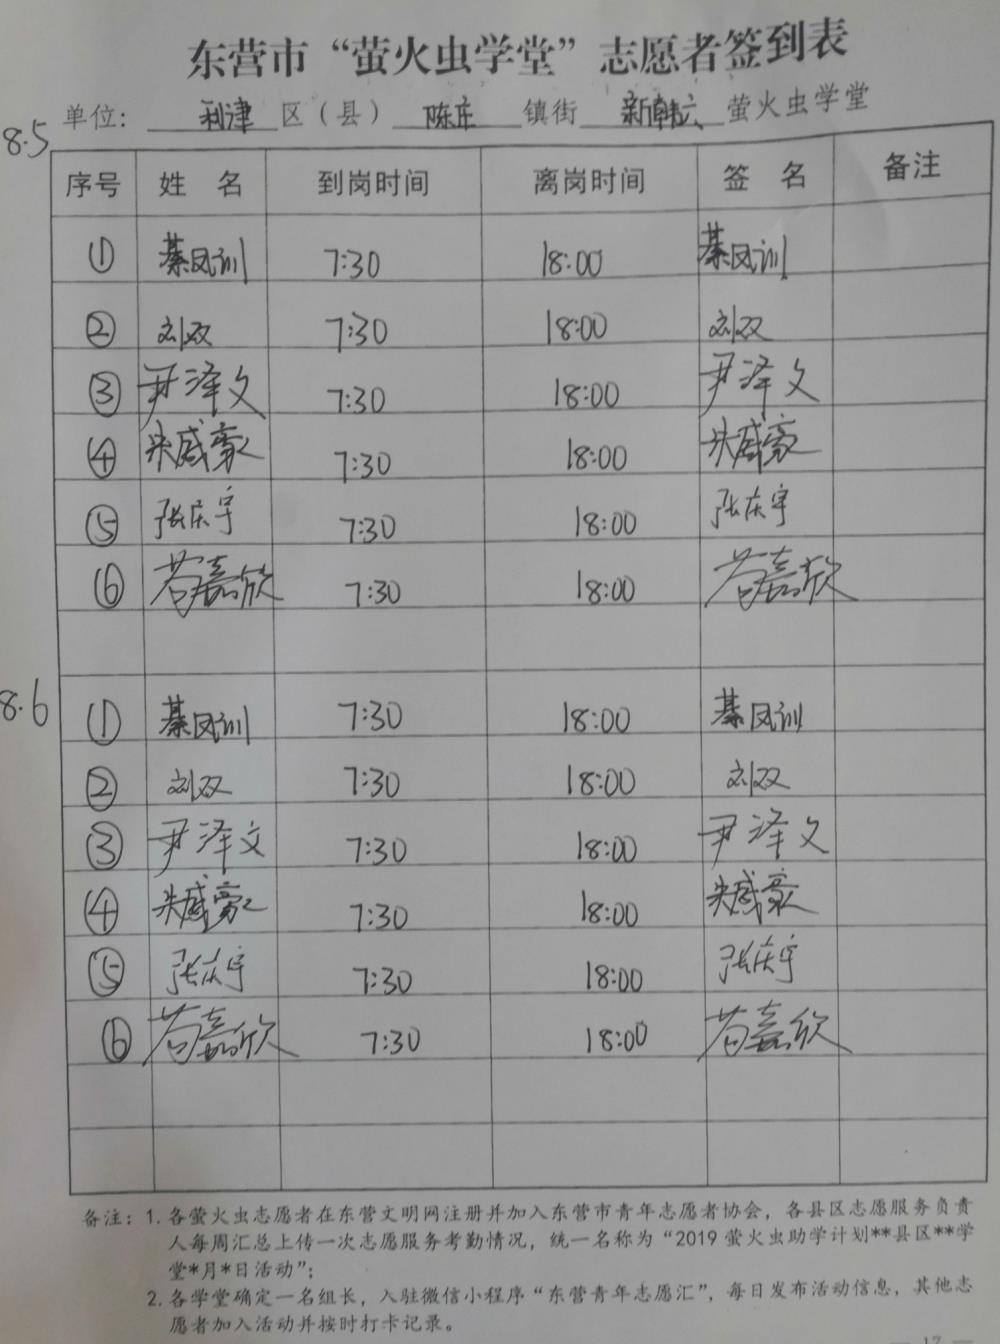 东营市“萤火虫学堂”志愿者签到表
单位： 利津 区（县） 陈庄 镇街 新韩六 萤火虫学堂
8.5
序号 姓名 到岗时间 离岗时间 签名 备注
① 綦凤训 7:30 18:00 綦凤训
② 刘双 7:30 18:00 刘双
③ 尹泽文 7:30 18:00 尹泽文
④ 朱威豪 7:30 18:00 朱威豪
⑤ 张庆宇 7:30 18:00 张庆宇
⑥ 苟嘉欣 7:30 18:00 苟嘉欣
8.6
① 綦凤训 7:30 18:00 綦凤训
② 刘双 7:30 18:00 刘双
③ 尹泽文 7:30 18:00 尹泽文
④ 朱威豪 7:30 18:00 朱威豪
⑤ 张庆宇 7:30 18:00 张庆宇
⑥ 苟嘉欣 7:30 18:00 苟嘉欣
备注：1. 各萤火虫志愿者在东营文明网注册并加入东营市青年志愿者协会，各县区志愿服务负责
人每周汇总上传一次志愿服务考勤情况，统一名称为“2019 萤火虫助学计划**县区**学
堂*月*日活动”；
2. 各学堂确定一名组长，入驻微信小程序“东营青年志愿汇”，每日发布活动信息，其他志
愿者加入活动并按时打卡记录。
— 17 —